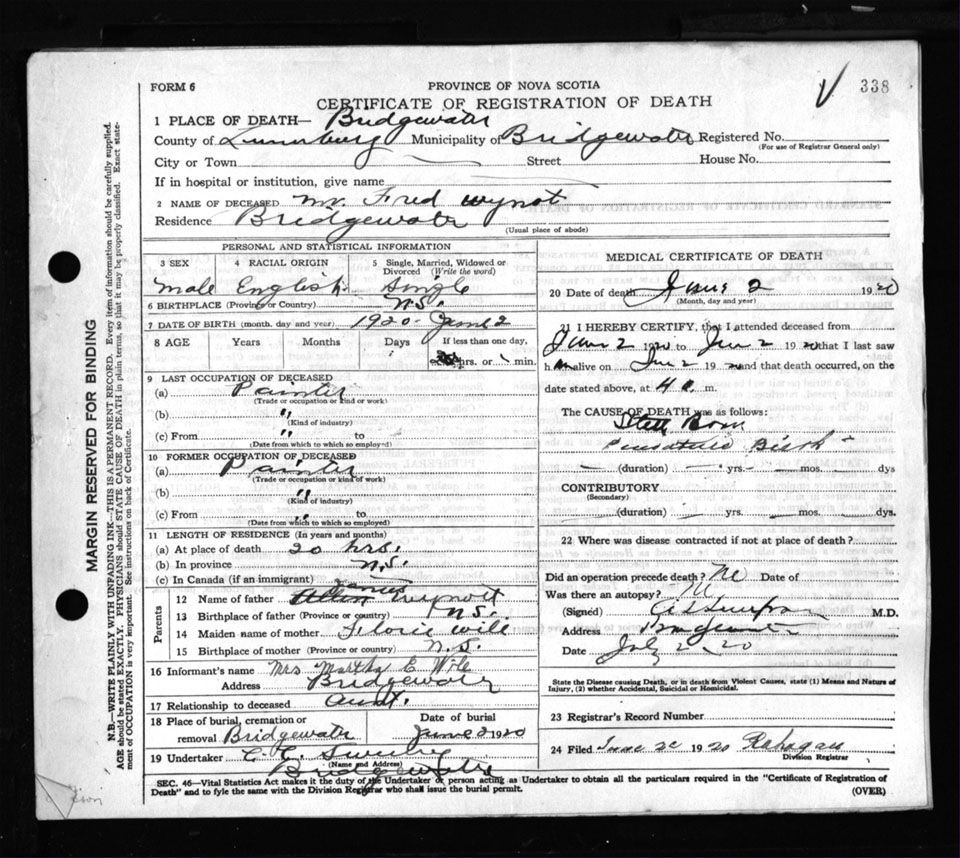 FORM 6
PROVINCE OF NOVA SCOTIA
338
CERTIFICATE OF REGISTRATION OF DEATH
1 PLACE OF DEATH— Bridgewater
County of Lunenburg Municipality of Bridgewater Registered No.
(For use of Registrar General only)
City or Town Street House No.
If in hospital or institution, give name
2 NAME OF DECEASED Mr. Fred Wynot
Residence Bridgewater
(Usual place of abode)
PERSONAL AND STATISTICAL INFORMATION
3 SEX 4 RACIAL ORIGIN 5 Single, Married, Widowed or Divorced (Write the word)
Male English Single
6 BIRTHPLACE (Province or Country) N.S.
7 DATE OF BIRTH (month, day and year) 1920 June 2
8 AGE Years Months Days If less than one day,
hrs. or min.
9 LAST OCCUPATION OF DECEASED
(a) Painter
(Trade or occupation or kind or work)
(b) "
(Kind of industry)
(c) From " to
(Date from which to which so employed)
10 FORMER OCCUPATION OF DECEASED
(a) Painter
(Trade or occupation or kind of work)
(b) "
(Kind of industry)
(c) From " to
(Date from which to which so employed)
11 LENGTH OF RESIDENCE (In years and months)
(a) At place of death 20 hrs.
(b) In province N.S.
(c) In Canada (if an immigrant)
Parents
12 Name of father James Wynott
13 Birthplace of father (Province or country) N.S.
14 Maiden name of mother Florie Wile
15 Birthplace of mother (Province or country) N.S.
16 Informant's name Mrs Martha E Wile
Address Bridgewater
17 Relationship to deceased Aunt.
18 Place of burial, cremation or removal Bridgewater Date of burial June 2 1920
19 Undertaker C. C.
(Name and Address)
Bridgewater
MEDICAL CERTIFICATE OF DEATH
20 Date of death June 2 1920
(Month, day and year)
21 I HEREBY CERTIFY, that I attended deceased from
June 2 1920 to June 2 1920 that I last saw
h alive on June 2 19 and that death occurred, on the
date stated above, at 4 m.
The CAUSE OF DEATH was as follows:
Still Born
Premature Birth
(duration) yrs. mos. dys
CONTRIBUTORY
(Secondary)
(duration) yrs. mos. dys.
22 Where was disease contracted if not at place of death?
Did an operation precede death? No Date of
Was there an autopsy? No
(Signed) M.D.
Address Bridgewater
Date July 2 20
State the Disease causing Death, or in death from Violent Causes, state (1) Means and Nature of Injury, (2) whether Accidental, Suicidal or Homicidal.
23 Registrar's Record Number
24 Filed June 1920
Division Registrar
SEC. 46—Vital Statistics Act makes it the duty of the Undertaker or person acting as Undertaker to obtain all the particulars required in the "Certificate of Registration of
Death" and to fyle the same with the Division Registrar who shall issue the burial permit.
(OVER)
MARGIN RESERVED FOR BINDING
N.B.—WRITE PLAINLY WITH UNFADING INK—THIS IS A PERMANENT RECORD. Every item of information should be carefully supplied.
AGE should be stated EXACTLY. PHYSICIANS should STATE CAUSE OF DEATH in plain terms, so that it may be properly classified. Exact statement of OCCUPATION is very important. See instructions on back of Certificate.